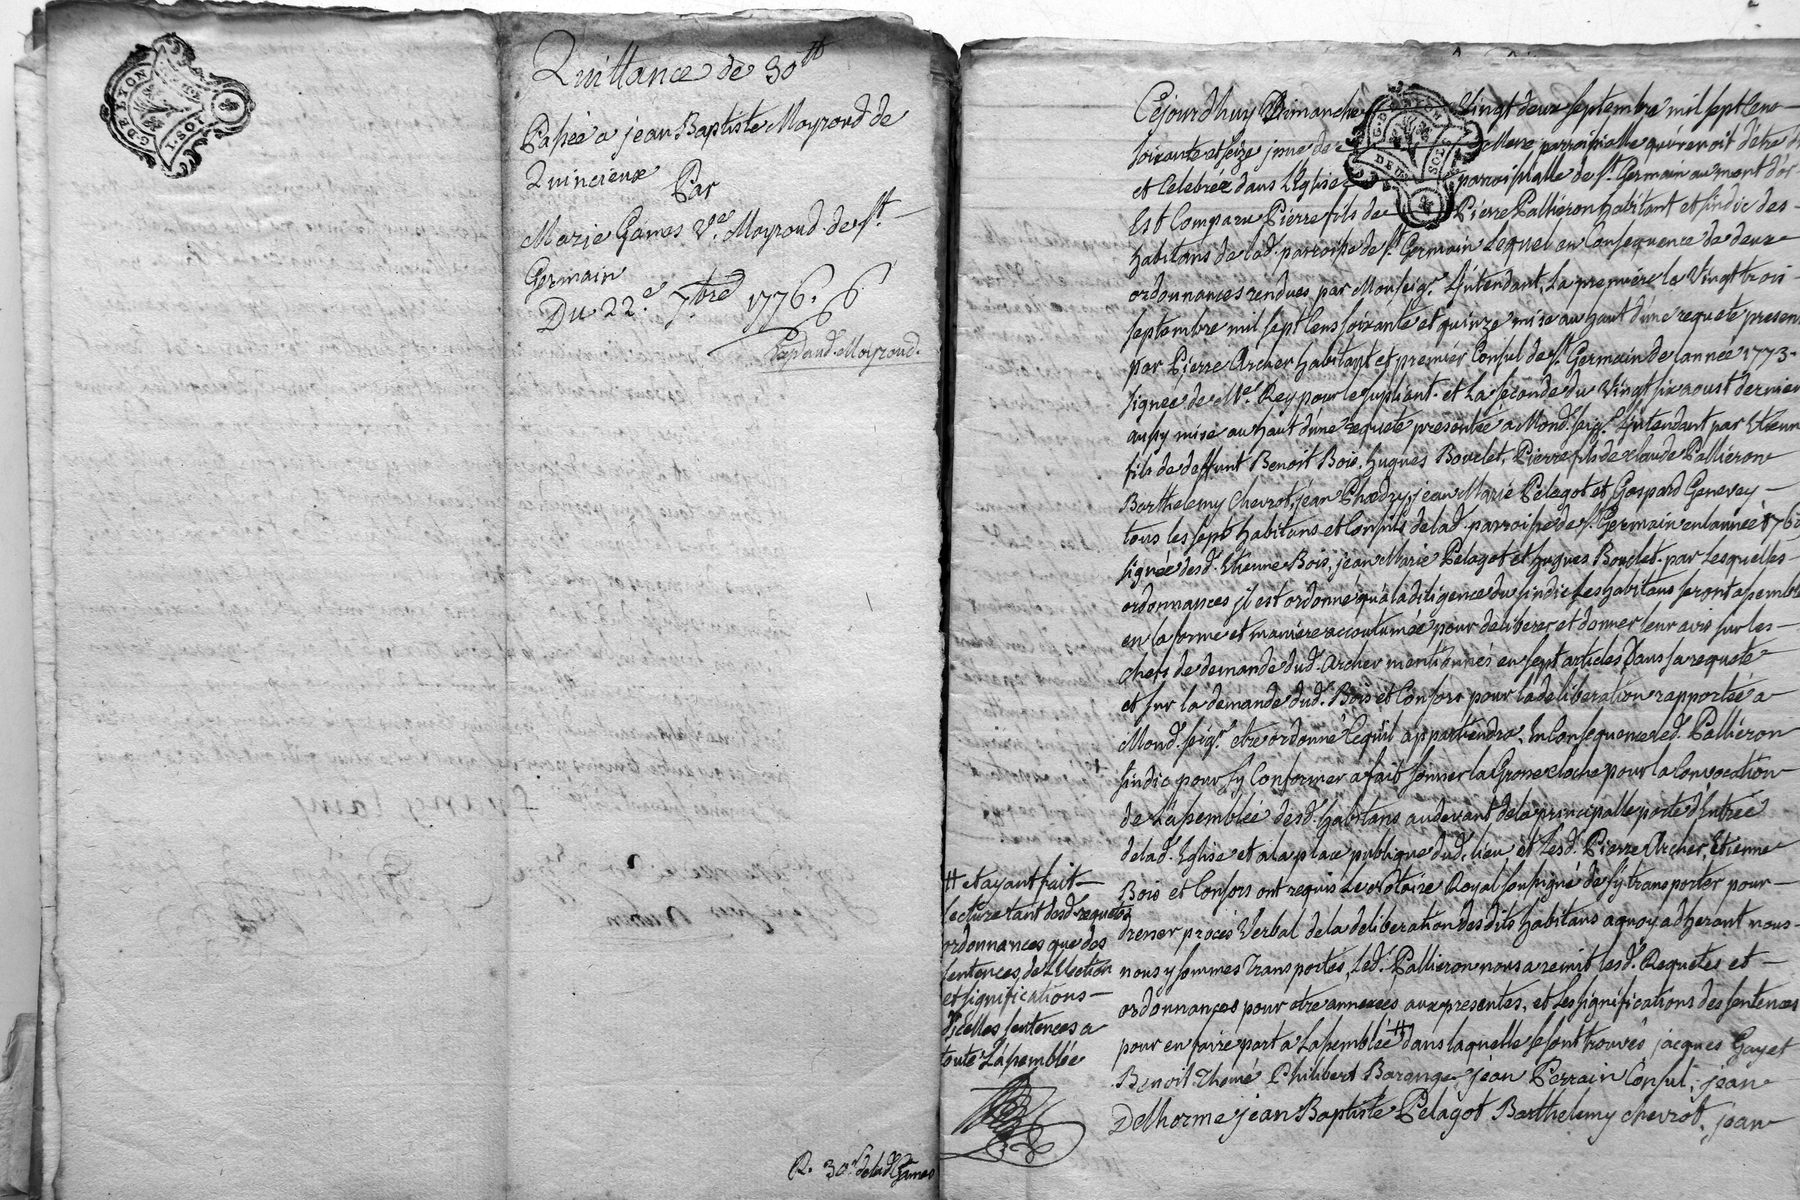 G. DE LYON
1. SOL
Quittance de 30ᵗᵗ
Passée a jean Baptiste Mayroud de
Quincieux
Par
Marie Gámes Vᵉ. Mayroud de Sᵗ.
Germain
Du 22ᵉ. 7.ᵇʳᵉ 1776.
Expᵈ and. Mayroud.
R. 30ˢ de lad Gámes
Cejourdhuy Dimanche Vingt deux septembre mil sept Cens
soixante et seize jssue de Messe parroissialle qui venoit d'être d
et Celebrée dans L'Eglise parroissialle de Sᵗ. Germain au mont d'or
Est Comparu Pierre fils de Pierre Pallieron habitant et sindic des
habitans de lad. parroisse de Sᵗ. Germain Lequel en Consequence de deux
ordonnances rendues par Monseigʳ. L'intendant, La première le Vingt trois
septembre mil sept Cens soixante et quinze mise au haut d'une requete presen
par Pierre Archer habitant et premiér Consul de Sᵗ. Germain de lannée 1773.
signée de Mᵉ. Rey pour le supliant. et La seconde du Vingt six aoust dernier
aussy mise au haut d'une requete presentée a Mond. seigʳ. L'intendant par Etienn
fils de deffunt Benoit Bois, hugues Bouclet, Pierre fils de claude Pallieron
Barthelemy Chevrot, jean Phœdry, jean Marie Pelagot et Gaspard Genevey
tous les sept habitans et Consuls de lad. parroisse de Sᵗ. Germain en lannée 176
signée desd. Etienne Bois, jean Marie Pelagot et hugues Bouclet. par Lesquelles
ordonnances jl est ordonné qu'a la diligence du sindic Les habitans seront assemble
en la forme et maniére accoutumée pour deliberer et donner leur avis sur les
chefs de demande dud. Archer mentionnés en sept articles Dans sa requete
et sur la demande dud. Bois et Consors pour la deliberation rapportée a
Mond. seigʳ. etre ordonné Ce qu'il appartiendra, En Consequence led. Pallieron
sindic pour s'y Conformer a fait sonner la Grosse cloche pour la Convocation
de L'assemblée desd. habitans au devant de la principalle porte d'Entrée
de lad. Eglise et a la place publique dud. lieu et Lesd. Pierre Archer, Etienne
Bois et Consors ont requis Le Notaire Royal soussigné de s'y transporter pour
drener procès Verbal de la deliberation desdits habitans a quoy adherant nous
nous y sommes transportés, Led. Pallieron nous a remit lesd. Requetes et
ordonnances pour etre annexées aux presentes, et Les significations des sentences
pour en faire part a Lassemblée # dans laquelle se sont trouvés jacques Gayet
Benoit Thomé Philibert Barange, jean Perrain Consul, jean
Delhorme jean Baptiste Pelagot Barthelemy chevrot, jean
# et ayant fait
lecture tant desd. requetes
ordonnances que des
sentences de L'Election
et significations
d'jcelles sentences a
toute L'assemblée